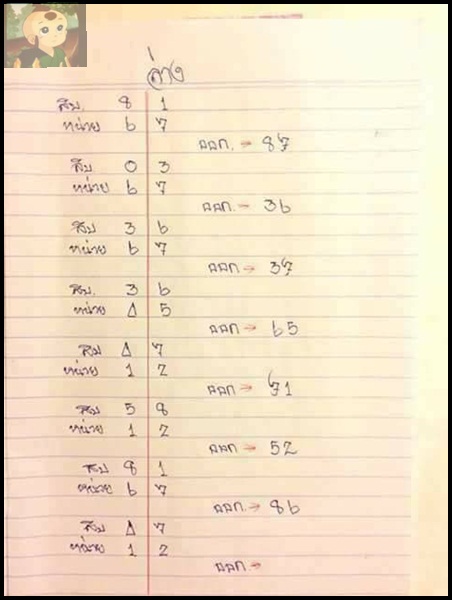 ล่าง
สิบ. 8 1
หน่วย 6 7
ออก. → 87
สิบ 0 3
หน่วย 6 7
ออก. → 36
สิบ 3 6
หน่วย 6 7
ออก → 37
สิบ. 3 6
หน่วย 4 5
ออก → 65
สิบ 4 7
หน่วย 1 2
ออก → 71
สิบ 5 8
หน่วย 1 2
ออก → 52
สิบ 8 1
หน่วย 6 7
ออก → 86
สิบ 4 7
หน่วย 1 2
ออก →